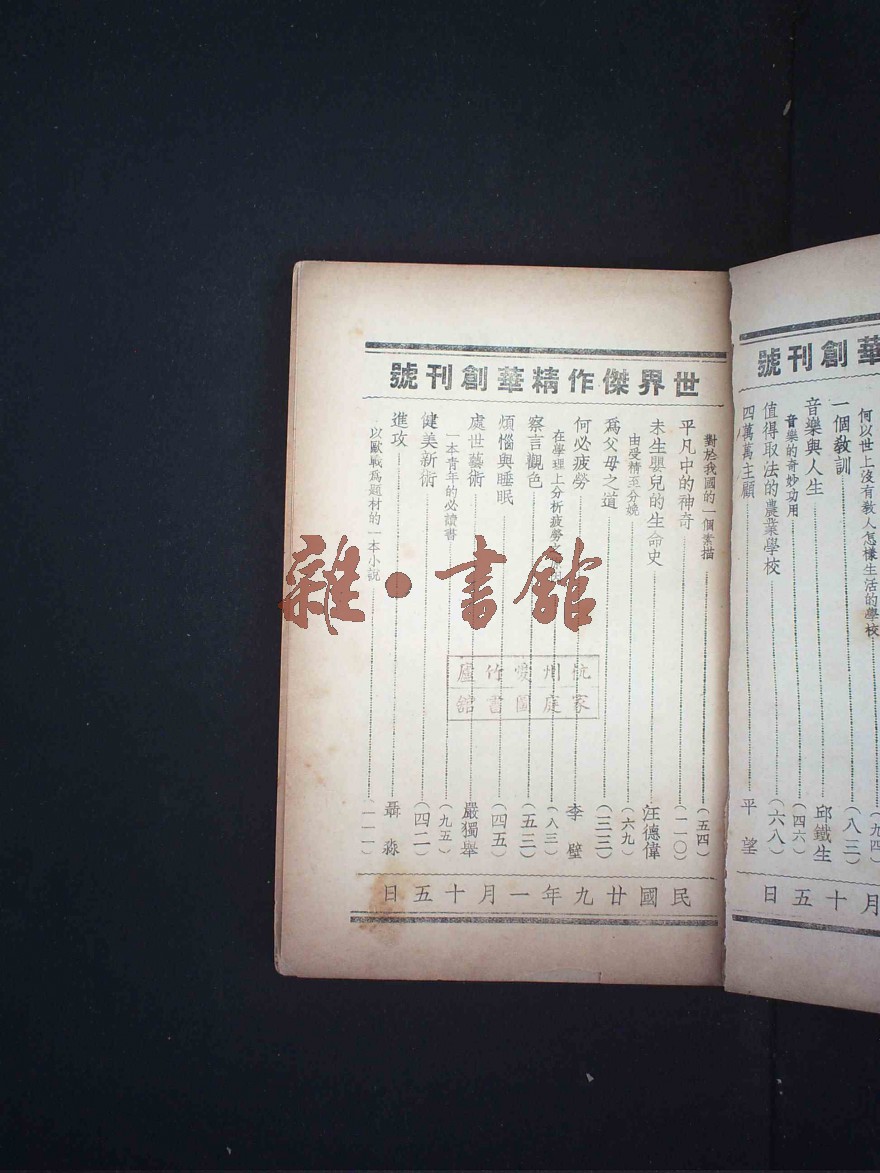 華創刊號
何以世上沒有敎人怎樣生活的學校 (九四)
一個敎訓 (八三)
音樂與人生 邱鐵生
音樂的奇妙功用 (四六)
值得取法的農業學校 (六八)
四萬萬主顧 平望
月十五日
世界傑作精華創刊號
對於我國的一個素描 (五四)
平凡中的神奇 (一一〇)
未生嬰兒的生命史 汪德偉
由受精至分娩 (六九)
爲父母之道 (三三)
何必疲勞 李璧
在學理上分析疲勞之 (八三)
察言觀色 (五三)
煩惱與睡眠 (四五)
處世藝術 嚴獨舉
一本青年的必讀書 (九五)
健美新術 (四二)
進攻 聶淼
以歐戰爲題材的一本小說 (一一一)
民國廿九年一月十五日
杭州愛竹廬
家庭圖書館
雜·書館